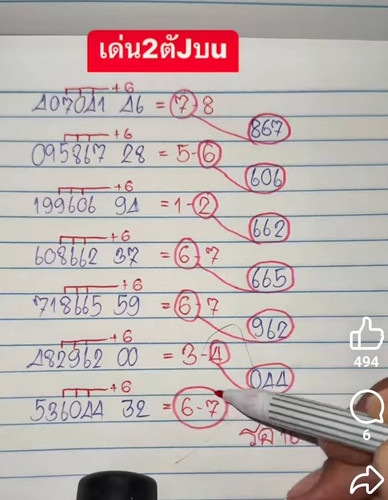 เด่น2ตัวบน
+6
407041 46 = 7-8
867
+6
095867 28 = 5-6
606
+6
199606 94 = 1-2
662
+6
608662 37 = 6-7
665
+6
718665 59 = 6-7
962
+6
482962 00 = 3-4
044
+6
536044 32 = 6-7
494
6